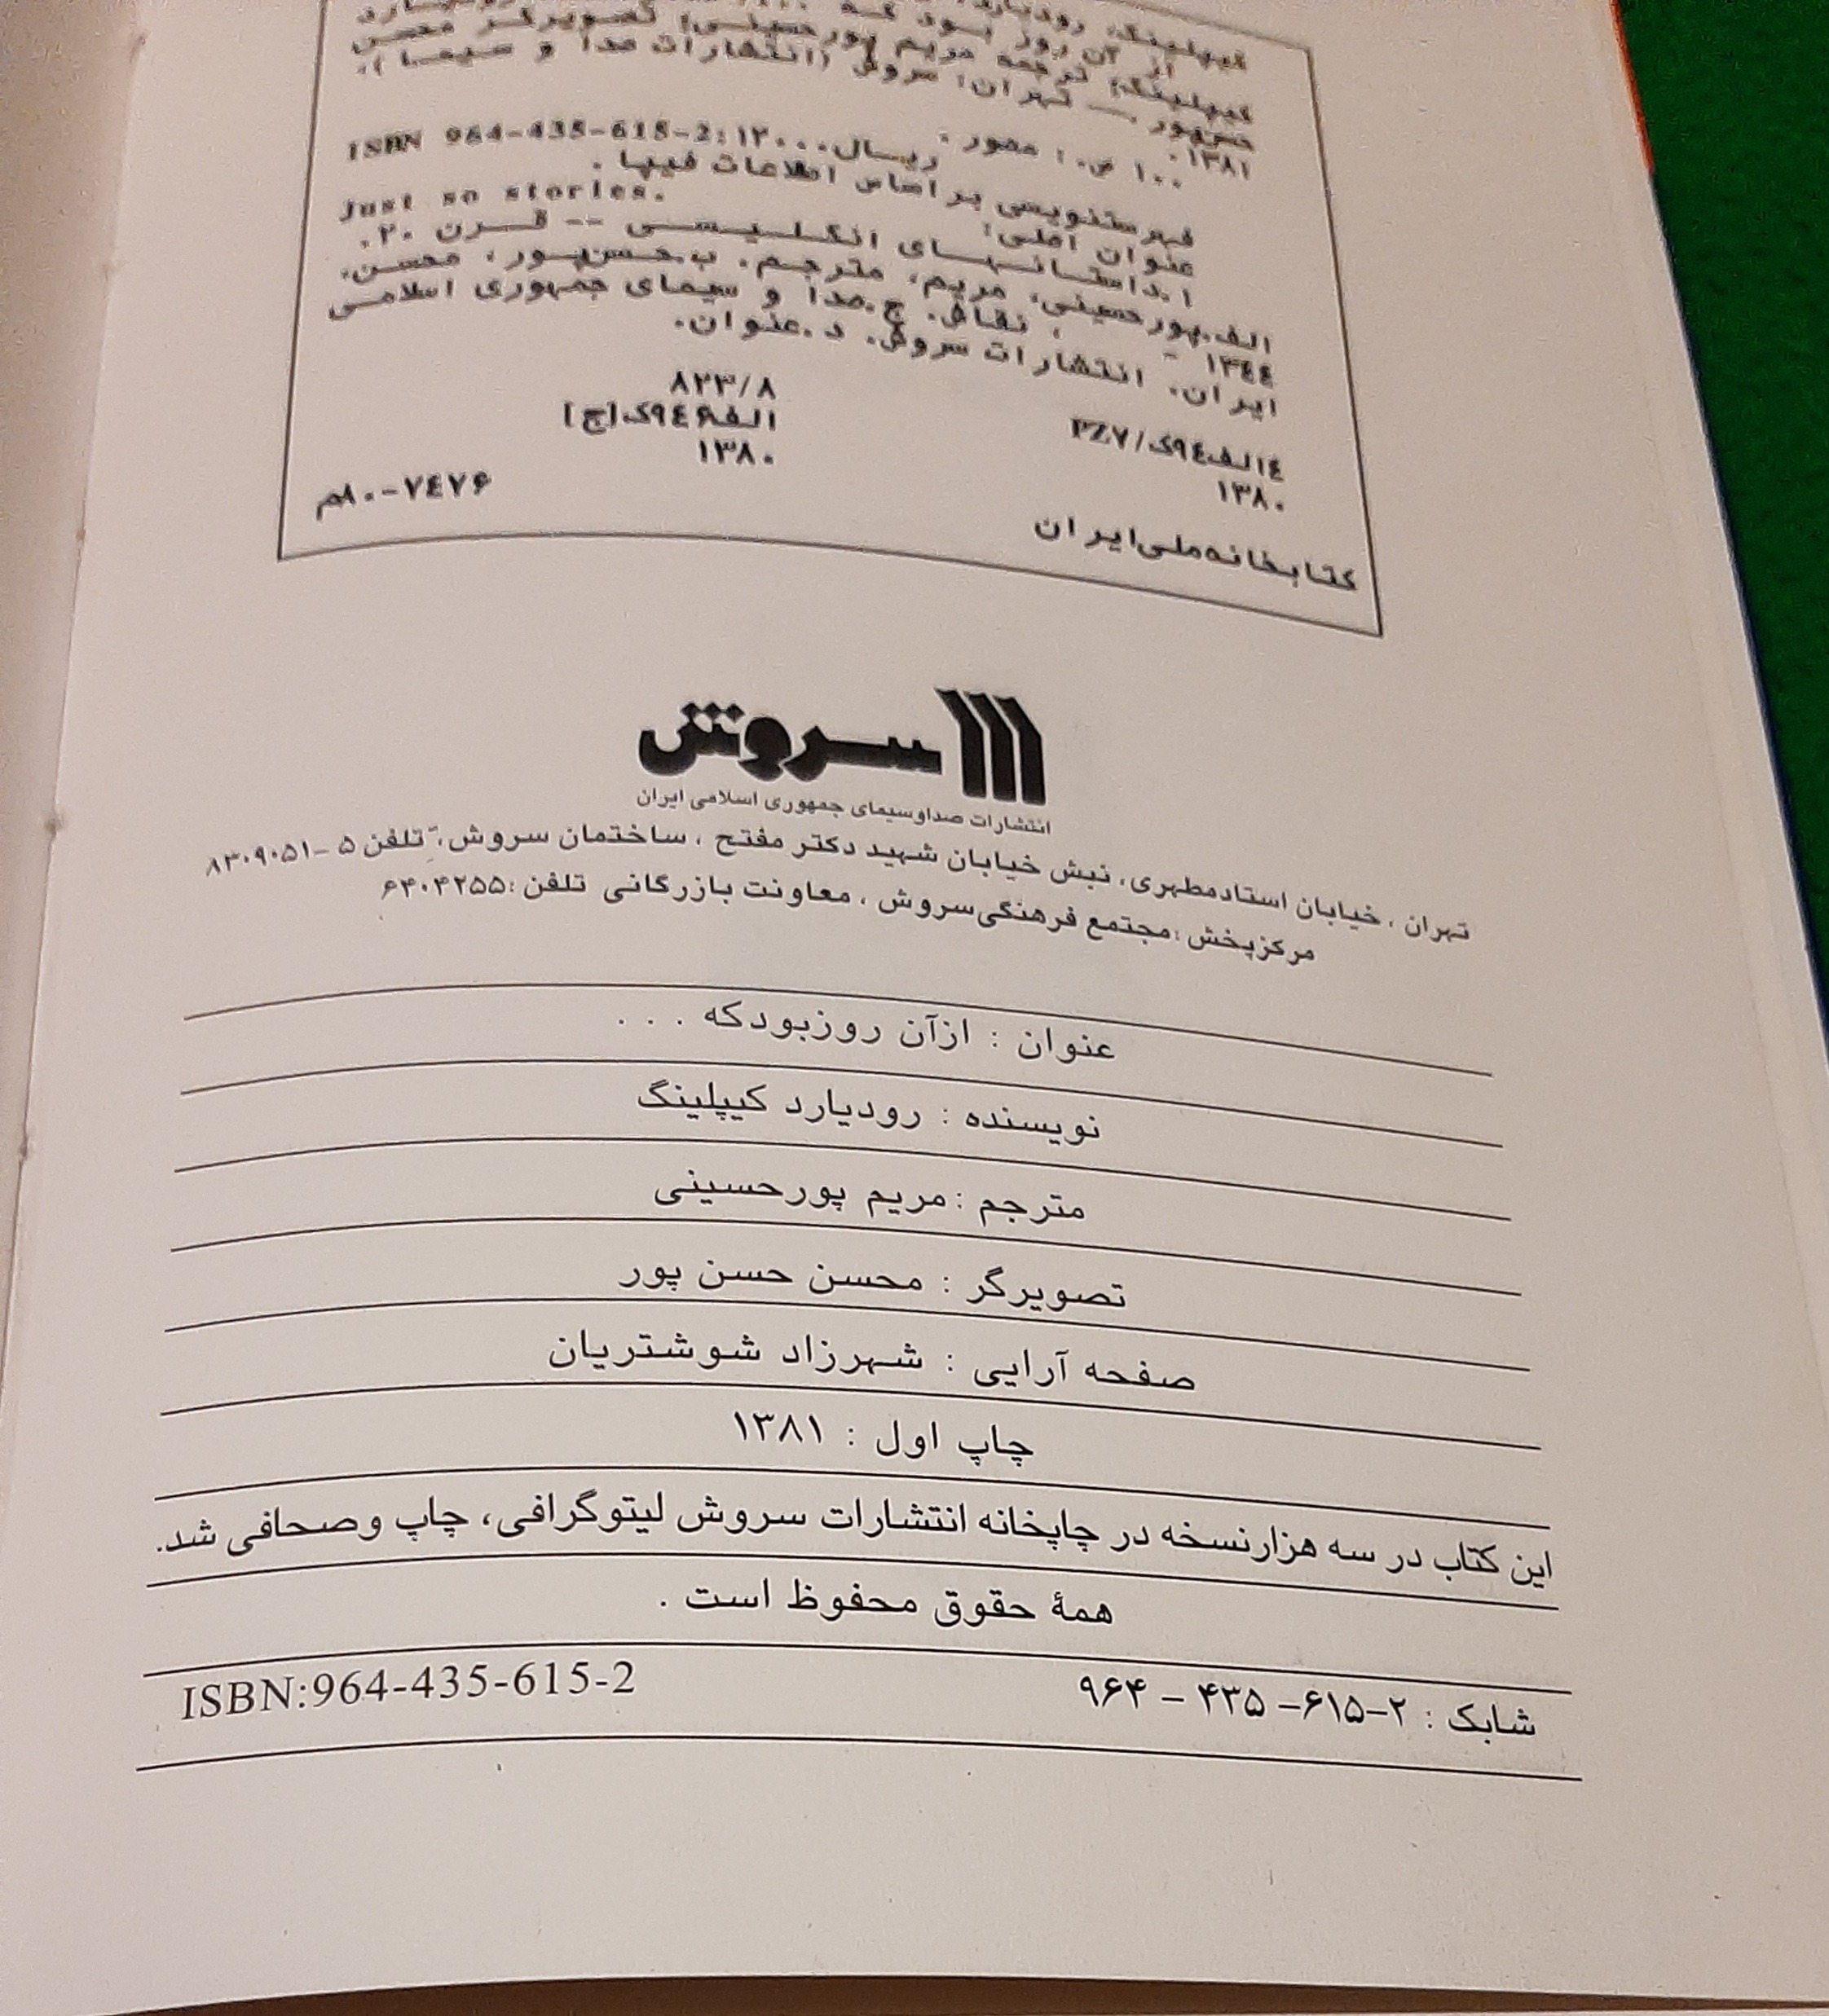 کیپلینگ، رودیارد
از آن روز بود که ...
کیپلینگ؛ ترجمه مریم پورحسینی؛ تصویرگر محسن
حسن‌پور. — تهران: سروش (انتشارات صدا و سیما)،
۱۳۸۱.
۱۰۰ ص.: مصور.
ISBN 964-435-615-2: ۱۲۰۰۰ ریال
فهرستنویسی براساس اطلاعات فیپا.
عنوان اصلی: Just so stories.
۱.داستانهای انگلیسی -- قرن ۲۰.
الف.پورحسینی، مریم، مترجم. ب.حسن‌پور، محسن،
۱۳۴۴ - ، نقاش. ج.صدا و سیمای جمهوری اسلامی
ایران. انتشارات سروش. د.عنوان.
۸۲۳/۸
۴الف۹۴ک/PZ۷
الف۹۴۶ک[ج]
۱۳۸۰
۱۳۸۰
۸۰-۷۴۷۶م
کتابخانه ملی ایران
سروش
انتشارات صداوسیمای جمهوری اسلامی ایران
تهران، خیابان استادمطهری، نبش خیابان شهید دکتر مفتح، ساختمان سروش، تلفن ۵ -۸۳۰۹۰۵۱
مرکزپخش: مجتمع فرهنگی‌سروش، معاونت بازرگانی تلفن: ۶۴۰۴۲۵۵
عنوان : ازآن روزبودکه . . .
نویسنده : رودیارد کیپلینگ
مترجم : مریم پورحسینی
تصویرگر : محسن حسن پور
صفحه آرایی : شهرزاد شوشتریان
چاپ اول : ۱۳۸۱
این کتاب در سه هزارنسخه در چاپخانه انتشارات سروش لیتوگرافی، چاپ وصحافی شد.
همهٔ حقوق محفوظ است .
شابک : ۲-۶۱۵- ۴۳۵ - ۹۶۴
ISBN:964-435-615-2